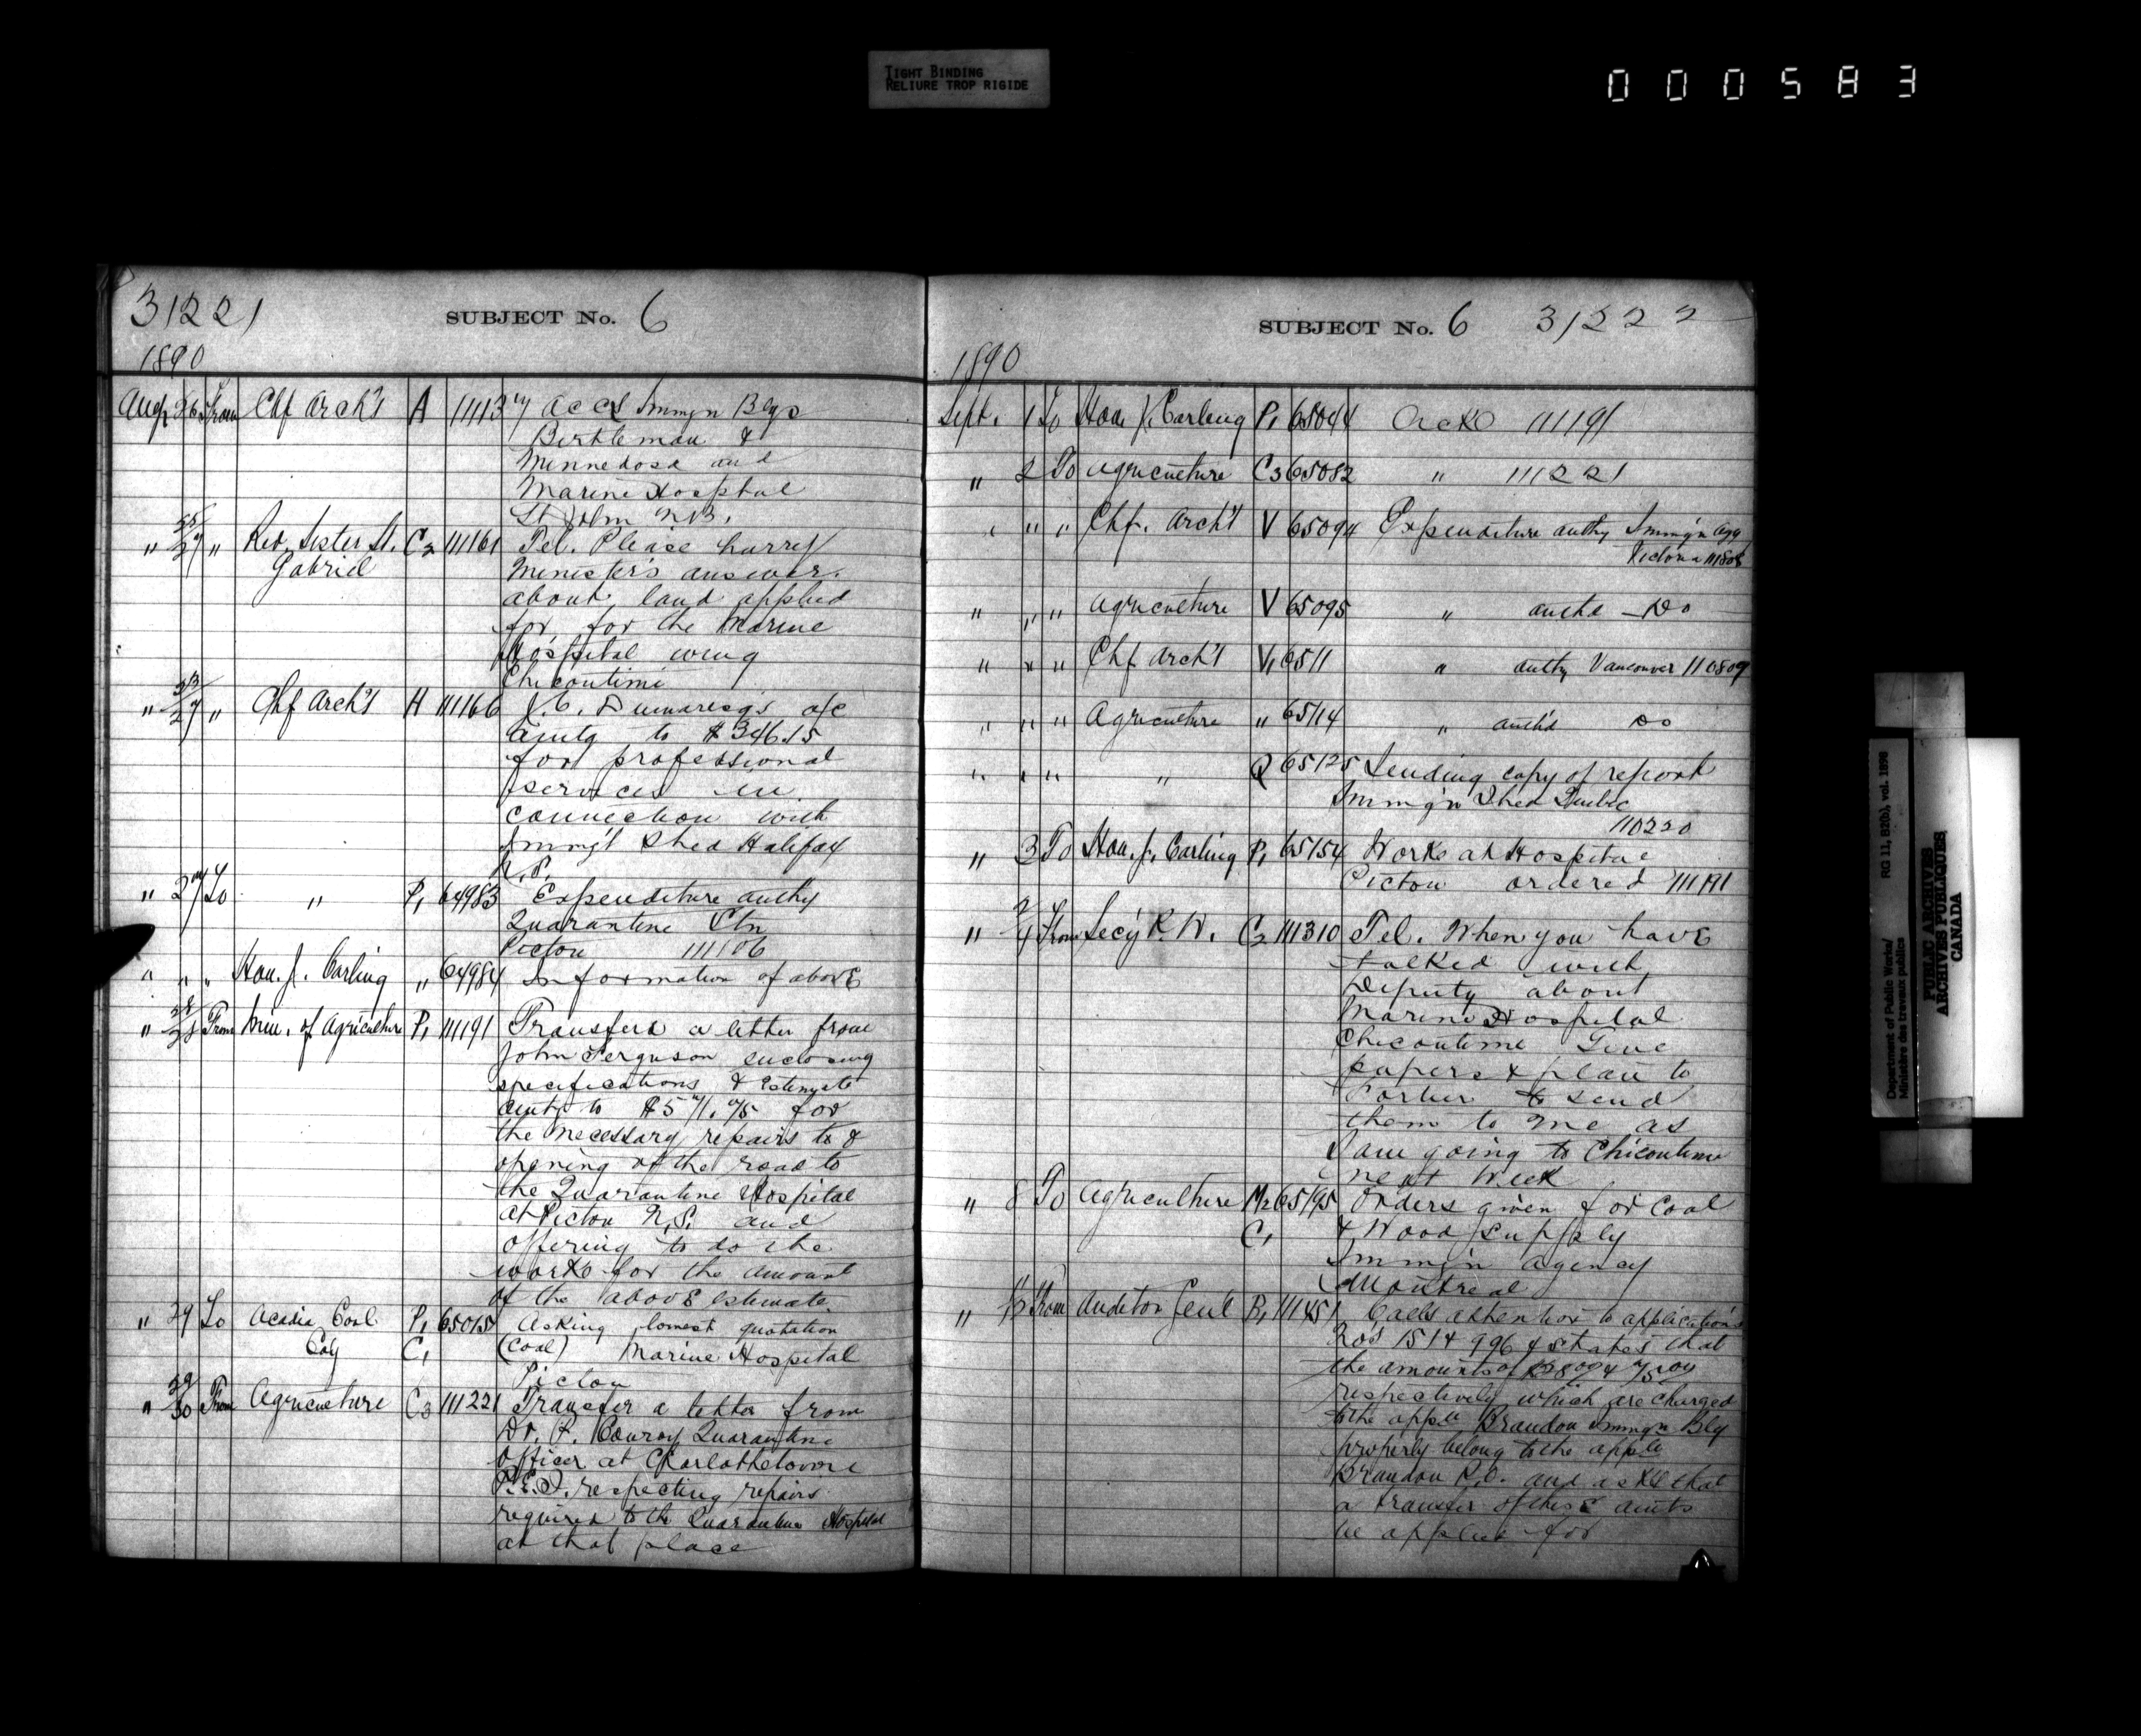 TIGHT BINDING
RELIURE TROP RIGIDE
000583
31221
SUBJECT No. 6
1890
Augt 26 From Chf Arch't A 111137 Accs Immgn Blgs
Birtleman &
Minnedosa and
Marine Hospital
St John N.B.
" 25/27 " Rev. Sister St. C2 111161 Tel. Please hurry
Gabriel Minister's answer
about land applied
for for the Marine
Hospital wing
Chicoutimi
" 23/27 " Chf Arch't H 111166 J. C. Dumaresq's a/c
amtg to $346.15
for professional
services in
connection with
Immg't Shed Halifax
N.S.
" 27 To " P1 64983 Expenditure authy
Quarantine Stn
Pictou 111106
" " " Hon. J. Carling " 64984 Information of above
" 28/28 From Min. of Agriculture P1 111191 Transfers a letter from
John Ferguson enclosing
specifications & estimate
amtg to $571.75 for
the necessary repairs to &
opening of the road to
the Quarantine Hospital
at Pictou N.S. and
offering to do the
works for the amount
of the above estimate.
" 29 To Acadia Coal P1 65015 Asking lowest quotation
Coy C1 (coal) Marine Hospital
Pictou
" 29/30 From Agriculture C3 111221 Transfer a letter from
Dr. P. Conroy Quarantine
officer at Charlottetown
P.E.I. respecting repairs
required to the Quarantine Hospital
at that place
SUBJECT No. 6 31222
1890
Sept. 1 To Hon. J. Carling P1 65044 Ackd 111191
" 2 To Agriculture C3 65082 " 111221
" " " Chf. Arch't V 65094 Expenditure authy Immg'n Agy
Victoria 111808
" " " Agriculture V 65095 " authd — Do
" " " Chf Arch't V1 6511 " authy Vancouver 110809
" " " Agriculture " 65114 " auth'd Do
" " " " Q 65125 Sending copy of report
Immg'n Shed Quebec
110220
" 3 To Hon. J. Carling P1 65154 Works at Hospital
Pictou ordered 111191
" 2/4 From Secy P. W. C2 111310 Tel. When you have
talked with
Deputy about
Marine Hospital
Chicoutimi Give
papers & plan to
to send
them to me as
I am going to Chicoutimi
next Week
" 8 To Agriculture M2 65195 Orders given for Coal
C1 & Wood supply
Immg'n agency
Montreal
" From Auditor Genl B1 111451 Calls attention to applications
Nos 1514 996 & states that
the amounts of
respectively which are charged
to the appn Brandon Immgn Blg
properly belong to the appn
Brandon P.O. and asks that
a transfer of these amts
be applied for
Department of Public Works/
Ministère des travaux publics
RG 11, B2(b), vol. 1898
PUBLIC ARCHIVES
ARCHIVES PUBLIQUES
CANADA